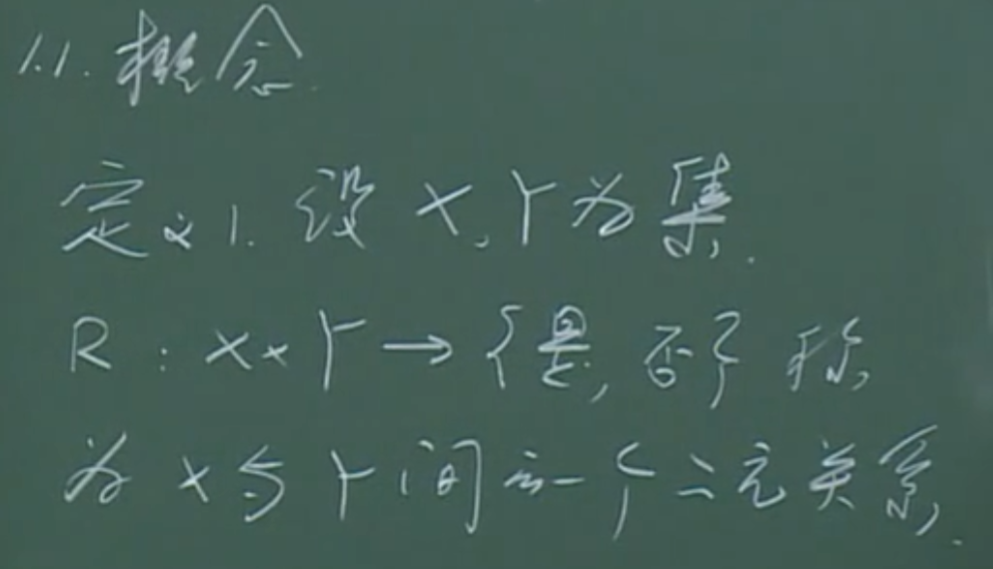 1.1. 概念.
定义1. 设 X, Y 为集.
R : X × Y → {是, 否} 称
为 X 与 Y 间的一个二元关系.